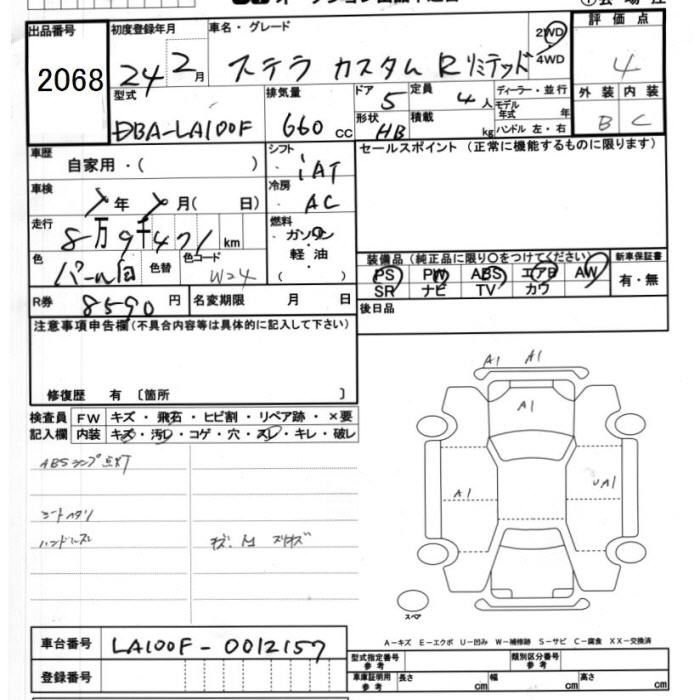 出品番号 2068
初度登録年月 24年 2月
車名・グレード ステラ カスタム Rリミテッド
2WD 4WD
評価点 4
型式 DBA-LA100F
排気量 660 cc
ドア 5
形状 HB
定員 4人
積載 kg
ディーラー・並行
モデル年式 年
ハンドル 左・右
外装 B
内装 C
車歴 自家用・( )
シフト iAT
セールスポイント (正常に機能するものに限ります)
車検 年 月( 日)
冷房 AC
走行 8万9千471 km
燃料 ガソリン・軽油
色 パール白
色替
色コード W24
装備品 (純正品に限り○をつけてください)
PS PW ABS エアB AW
SR ナビ TV カワ
新車保証書 有・無
R券 8590 円
名変期限 月 日
後日品
注意事項申告欄(不具合内容等は具体的に記入して下さい)
修復歴 有 〔箇所 〕
検査員記入欄
FW キズ・飛石・ヒビ割・リペア跡・×要
内装 キズ・汚レ・コゲ・穴・スレ・キレ・破レ
ABSランプ点灯
シートヘタリ
ハンドルスレ
A1 A1
A1
A1 UA1
スペア
A-キズ E-エクボ U-凹み W-補修跡 S-サビ C-腐食 XX-交換済
車台番号 LA100F-0012157
登録番号
型式指定番号 参考
類別区分番号 参考
車庫証明用 参考 長さ cm 幅 cm 高さ cm